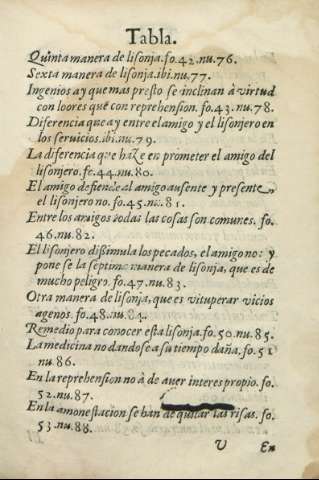 Tabla.
Quinta manera de lisonja.fo.42.nu.76.
Sexta manera de lisonja.ibi.nu.77.
Ingenios ay que mas presto se inclinan à virtud
con loores que con reprehension.fo.43.nu.78.
Diferencia que ay entre el amigo y el lisonjero en
los servicios.ibi.nu.79.
La diferencia que haze en prometer el amigo del
lisonjero.fo.44.nu.80.
El amigo defiende al amigo ausente y presente,
el lisonjero no.fo.45.nu.81.
Entre los amigos todas las cosas son comunes. fo.
46.nu.82.
El lisonjero dissimula los pecados, el amigo no: y
pone se la septima manera de lisonja, que es de
mucho peligro.fo.47.nu.83.
Otra manera de lisonja, que es vituperar vicios
agenos.fo.48.nu.84.
Remedio para conocer esta lisonja.fo.50.nu.85.
La medicina no dandose a su tiempo daña.fo.51
nu.86.
En la reprehension no à de auer interes propio.fo.
52.nu.87.
En la amonestacion se han de quitar las risas. fo.
53.nu.88.
V En